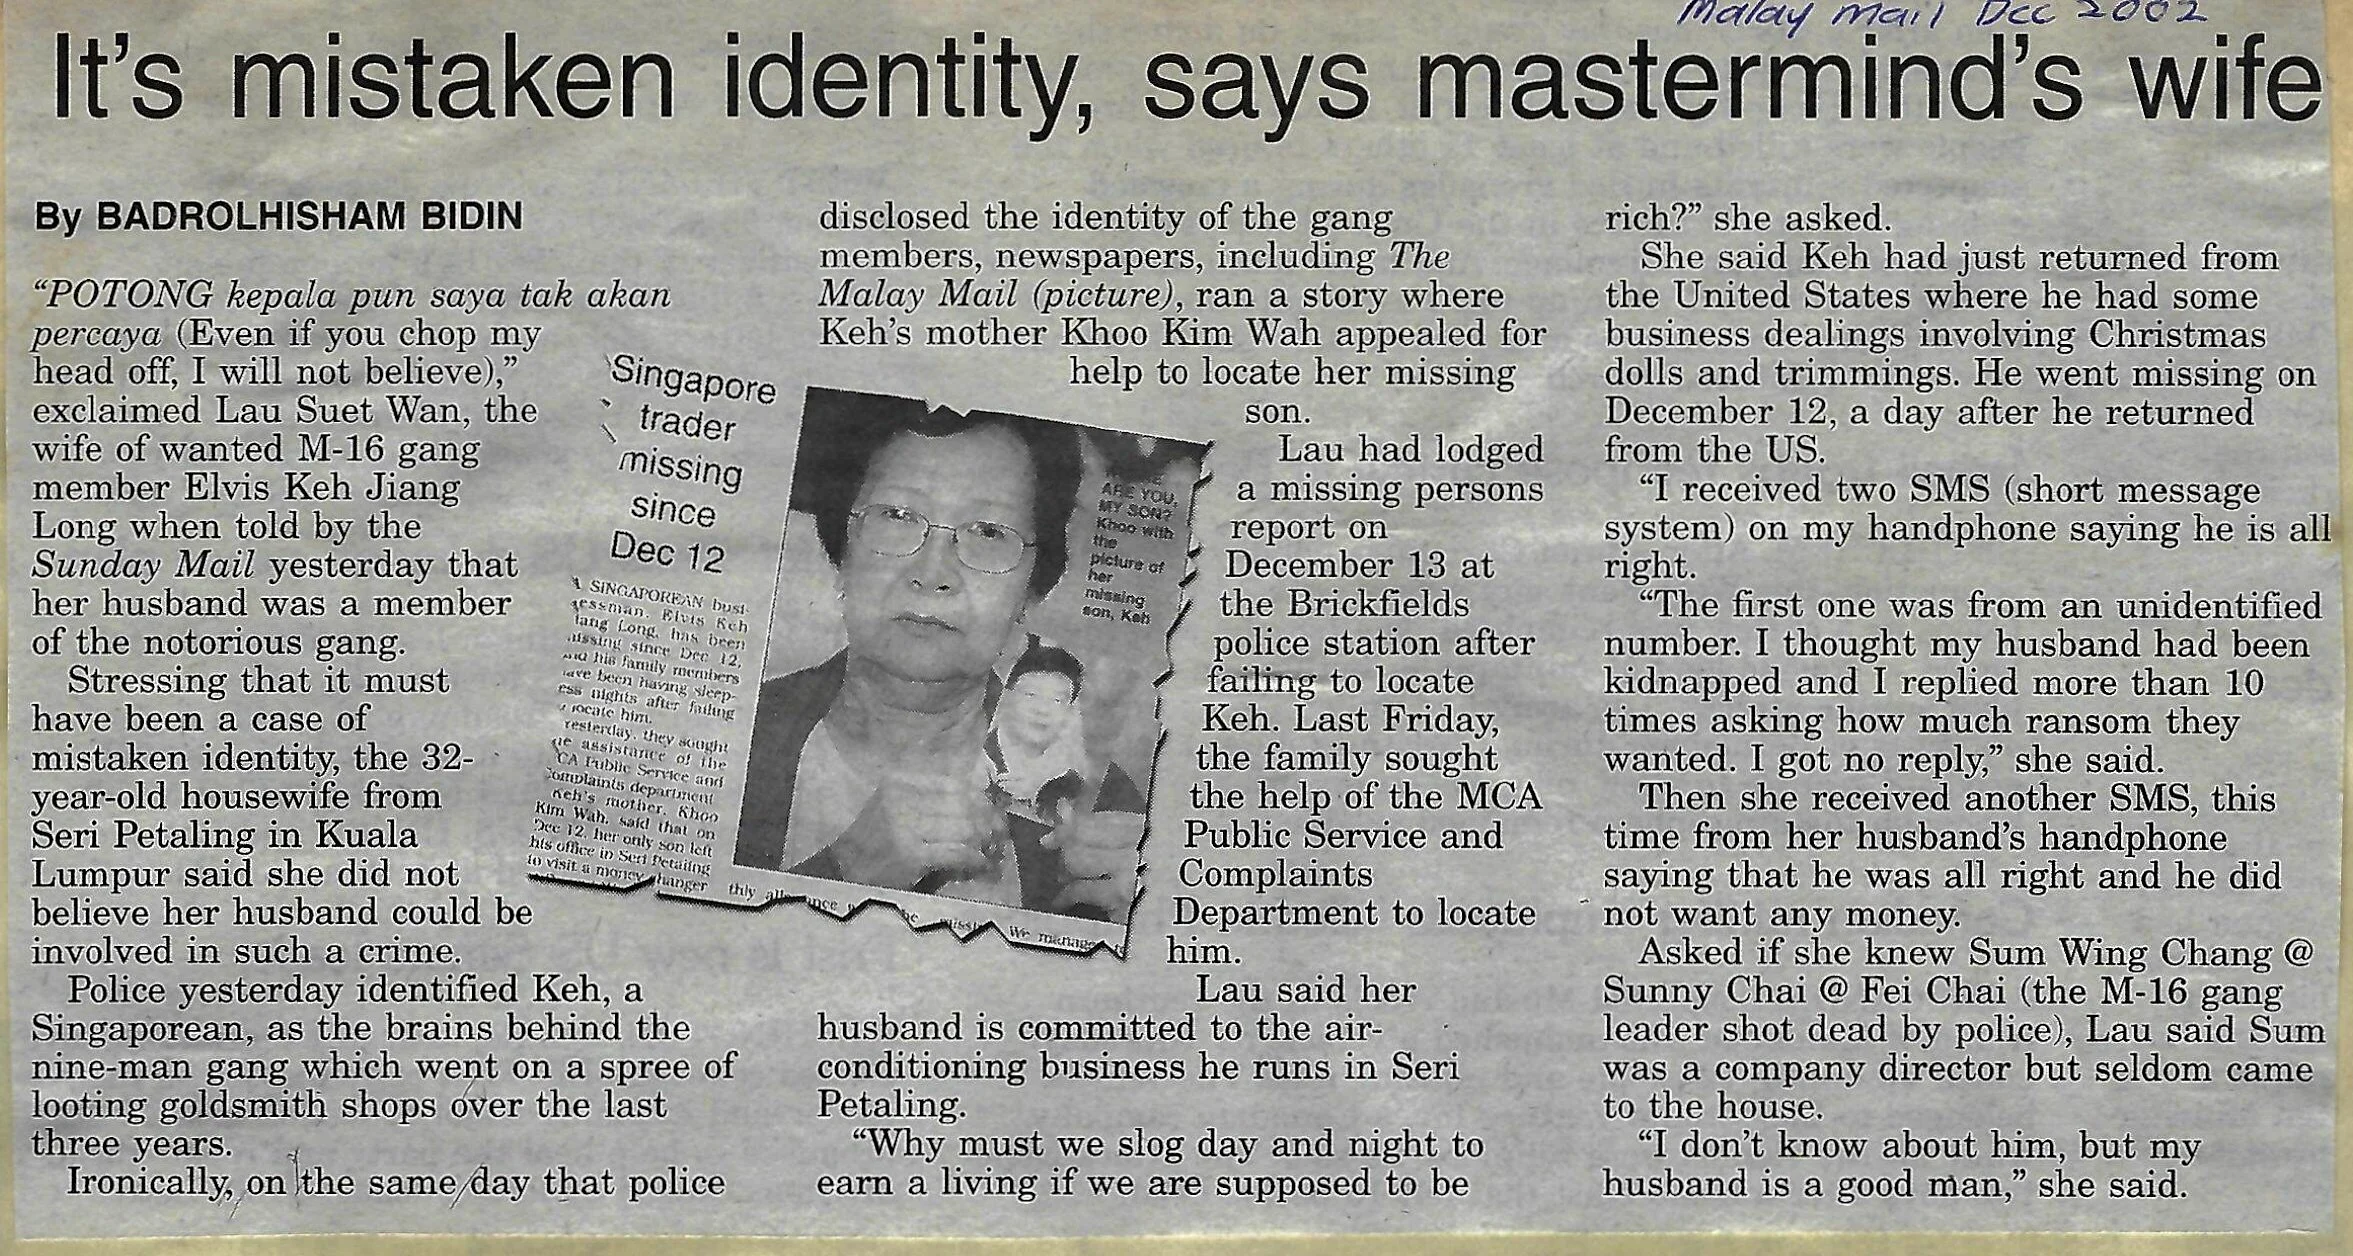 Malay Mail Dec 2002
It's mistaken identity, says mastermind's wife
By BADROLHISHAM BIDIN
“POTONG kepala pun saya tak akan
percaya (Even if you chop my
head off, I will not believe),”
exclaimed Lau Suet Wan, the
wife of wanted M-16 gang
member Elvis Keh Jiang
Long when told by the
Sunday Mail yesterday that
her husband was a member
of the notorious gang.
Stressing that it must
have been a case of
mistaken identity, the 32-
year-old housewife from
Seri Petaling in Kuala
Lumpur said she did not
believe her husband could be
involved in such a crime.
Police yesterday identified Keh, a
Singaporean, as the brains behind the
nine-man gang which went on a spree of
looting goldsmith shops over the last
three years.
Ironically, on the same day that police
Singapore
trader
missing
since
Dec 12
A SINGAPOREAN busi-
Elvis Keh
Long, has been
since Dec 12,
his family members
have been having sleep-
nights after failing
locate him.
Yesterday, they sought
assistance of the
Public Service and
department
Keh's mother, Khoo
Kim Wah, said that on
Dec 12, her only son left
his office in Seri Petaling
to visit a money changer
We manage
ARE YOU,
MY SON?
Khoo with
the
picture of
her
missing
son, Keh
disclosed the identity of the gang
members, newspapers, including The
Malay Mail (picture), ran a story where
Keh's mother Khoo Kim Wah appealed for
help to locate her missing
son.
Lau had lodged
a missing persons
report on
December 13 at
the Brickfields
police station after
failing to locate
Keh. Last Friday,
the family sought
the help of the MCA
Public Service and
Complaints
Department to locate
him.
Lau said her
husband is committed to the air-
conditioning business he runs in Seri
Petaling.
“Why must we slog day and night to
earn a living if we are supposed to be
rich?” she asked.
She said Keh had just returned from
the United States where he had some
business dealings involving Christmas
dolls and trimmings. He went missing on
December 12, a day after he returned
from the US.
“I received two SMS (short message
system) on my handphone saying he is all
right.
“The first one was from an unidentified
number. I thought my husband had been
kidnapped and I replied more than 10
times asking how much ransom they
wanted. I got no reply,” she said.
Then she received another SMS, this
time from her husband's handphone
saying that he was all right and he did
not want any money.
Asked if she knew Sum Wing Chang @
Sunny Chai @ Fei Chai (the M-16 gang
leader shot dead by police), Lau said Sum
was a company director but seldom came
to the house.
“I don't know about him, but my
husband is a good man,” she said.